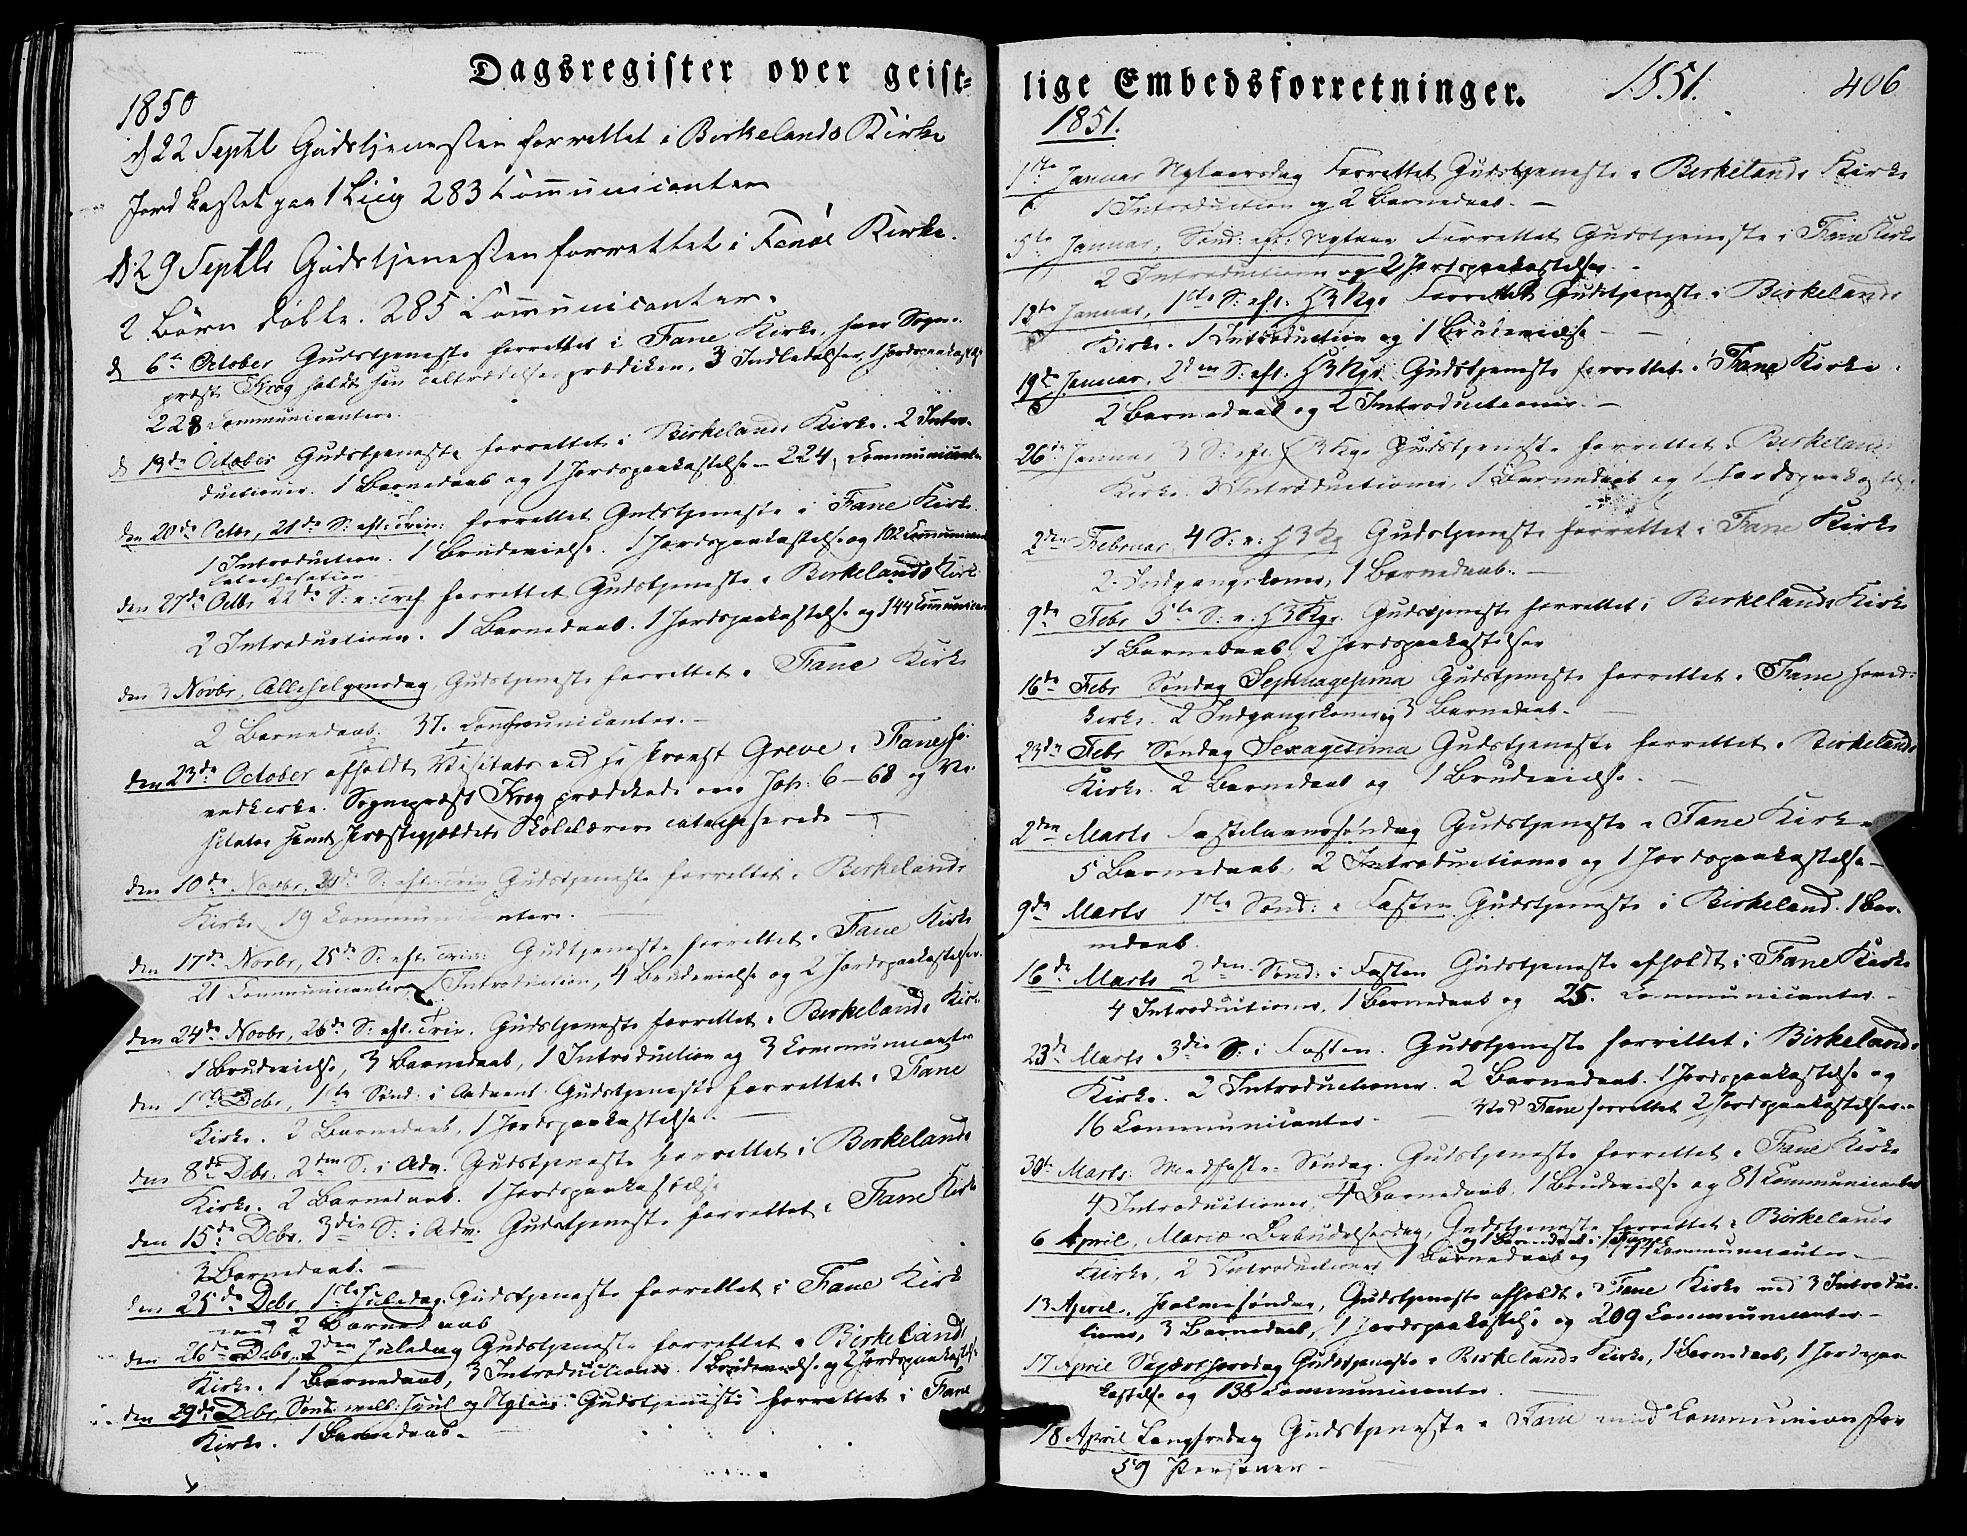 Dagsregister over geist=
1850
d 22 Septb Gudstjenesten forrettet i Birkelands Kirke
Jord kastet paa 1 Liig 283 Communicanter
d 29 Septb Gudstjenesten forrettet i Kirke.
2 Börn döbte. 285 Communicanter.
d 6te October Gudstjeneste forrettet i Fane Kirke, hvor Sogne-
præst Krog holdt sin Tiltrædelsesprædiken, 3 Indledelser, 1 Jordspaakastelse
228 Communicanter.
d 13de October Gudstjeneste forrettet i Birkelands Kirke. 2 Intro-
ductioner. 1 Barnedaab og 1 Jordspaakastelse – 224 Communicanter
den 20de Octbr, 21de S: eft: Trin: forrettet Gudstjeneste i Fane Kirke
1 Introduction. 1 Brudevielse. 1 Jordspaakastelse og 102 Communicanter
Catechisation
den 27de Octbr 22de S: e: Tref. forrettet Gudstjeneste i Birkelands Kirke
2 Introductioner. 1 Barnedaab. 1 Jordspaakastelse og 144 Communicanter
den 3 Novbr, Allehelgensdag, Gudstjeneste forrettet i Fane Kirke
2 Barnedaab. 37. Communicanter. –
den 23de October afholdt Visitats ved Hr Provst Greve i Fane Ho-
vedkirke. Sognepræst Krog prædikede over Joh: 6 – 68 og Vi-
sitator samt Præstegjeldets Skolelærere catechiserede –
den 10de Novbr, 24de S: eft: Trin Gudstjeneste forrettet i Birkelands
Kirke, 19 Communicantere.
den 17de Novbr, 25de S: eft: Trin: Gudtjeneste forrettet i Fane Kirke
21 Communicanter, 1 Introduction, 4 Brudevielse og 2 Jordspaakastelser.
den 24de Novbr, 26de S: eft: Trin. Gudstjeneste forrettet i Birkelands Kirke
1 Brudevielse, 3 Barnedaab, 1 Introduction og 3 Communicanter
den 1ste Debr, 1ste Sönd: i Advent. Gudstjeneste forrettet i Fane
Kirke. 2 Barnedaab, 1 Jordspaakastelse. –
den 8de Dbr. 2den S: i Adv. Gudstjeneste forrettet i Birkelands
Kirke. 2 Barnedaab. 1 Jordspaakastelse
den 15de Debr, 3die S: i Adv. Gudstjeneste forrettet i Fane Kirke
3 Barnedaab. –
den 25de Debr, 1ste Juledag. Gudstjeneste forrettet i Fane Kirke
med 2 Barnedaab
den 26de Debr, 2den Juledag Gudstjeneste forrettet i Birkelands
Kirke. 1 Barnedaab, 3 Introductioner. 1 Brudevielse og 2 Jordspaakastelse
den 29de Debr, Sönd: mell: Juul og Nytaar: Gudstjeneste forrettet i Fane
Kirke. 1 Barnedaab. –
lige Embedsforretninger.
1851.
406
1851.
1ste Januar Nytaarsdag Forrettet Gudstjeneste i Birkelands Kirke
1 Introduction og 2 Barnedaab. –
5te Januar, Sönd: eft: Nytaar Forrettet Gudstjeneste i Fane Kirke
2 Introductioner og 2 Jordspaakastelser. –
12te Januar, 1ste S: eft: H3Kgr Forrettet Gudstjeneste i Birkelands
Kirke. 1 Introduction og 1 Brudevielse –
19de Januar, 2den S: eft: H3Kgr. Gudstjeneste forrettet i Fane Kirke.
2 Barnedaab og 2 Introductioner. –
26de Januar 3 S: eft. H3Kgr Gudstjeneste forrettet i Birkelands
Kirke. 3 Introductioner, 1 Barnedaab og 1 Jordspaakastelse
2den Februar, 4 S: e: H3Kg Gudstjeneste forrettet i Fane Kirke
2 Indgangskoner, 1 Barnedaab. –
9de Febr 5te S: e: H3Kgr. Gudstjeneste forrettet i Birkelands Kirke
1 Barnedaab, 2 Jordspaakastelser
16de Febr Söndag Septuagesima Gudstjeneste forrettet i Fane Hoved-
kirke. 2 Indgangskoner og 3 Barnedaab. –
23de Febr Söndag Sexagesima Gudstjeneste forrettet i Birkelands
Kirke. 2 Barnedaab og 1 Brudevielse. –
2den Marts Fastelavnssöndag Gudstjeneste i Fane Kirke
5 Barnedaab, 2 Introductioner og 1 Jordspaakastelse –
9de Marts 1ste Sönd: i Fasten Gudstjeneste i Birkeland. 1 Bar-
nedaab.
16de Marts 2den Sönd: i Fasten Gudstjeneste afholdt i Fane Kirke
4 Introductioner, 1 Barnedaab og 25. Communicanter. –
23de Marts 3die S: i Fasten. Gudstjeneste forrettet i Birkelands
Kirke. 2 Introductioner. 2 Barnedaab. 1 Jordspaakastelse og
16 Communicanter. – Ved Fane forrettet 2 Jordspaakastelser. –
30te Marts: Midfaste-Söndag. Gudstjeneste forrettet i Fane Kirke
4 Introductioner, 4 Barnedaab, 1 Brudevielse og 81 Communicanter
6 April, Mariæ Bebudelsesdag, Gudstjeneste forrettet i Birkelands
og 1 Barnedaab i Fane
Kirke, 2 Introductioner 1 Barnedaab og Communicanter –
13 April. Palmesöndag, Gudstjeneste afholdt i Fane Kirke med 3 Introduc-
tioner, 3 Barnedaab, 1 Jordspaakastelse og 209 Communicanter –
17 April Skjærthorsdag Gudstjeneste i Birkelands Kirke, 1 Barnedaab, 1 Jordspaa-
kastelse og 138 Communicanter.
18 April Langfredag Gudstjeneste i Fane med Communion for
59 Personer –